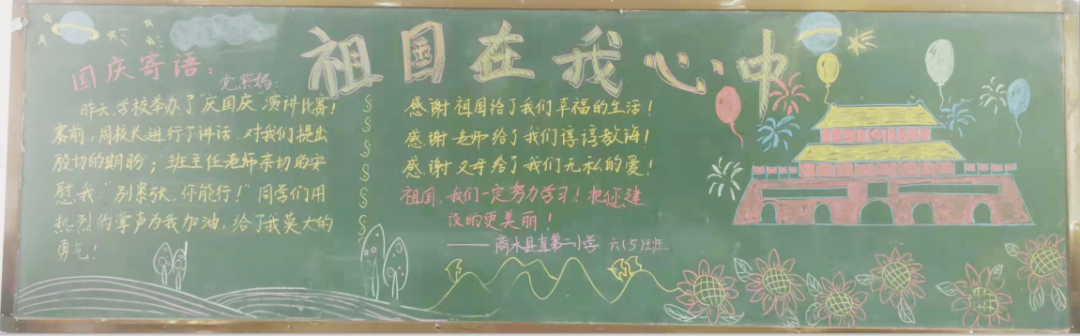 祖国在我心中
国庆寄语：
昨天，学校举办了"庆国庆"演讲比赛！
赛前，周校长进行了讲话，对我们提出
殷切的期盼；班主任老师亲切的安
慰我："别紧张，你能行！"同学们用
热烈的掌声为我加油，给了我莫大的
勇气！
感谢祖国给了我们幸福的生活！
感谢老师给了我们谆谆教诲！
感谢父母给了我们无私的爱！
祖国，我们一定努力学习！把您建
设的更美丽！
——商水县直第二小学 六（5）班